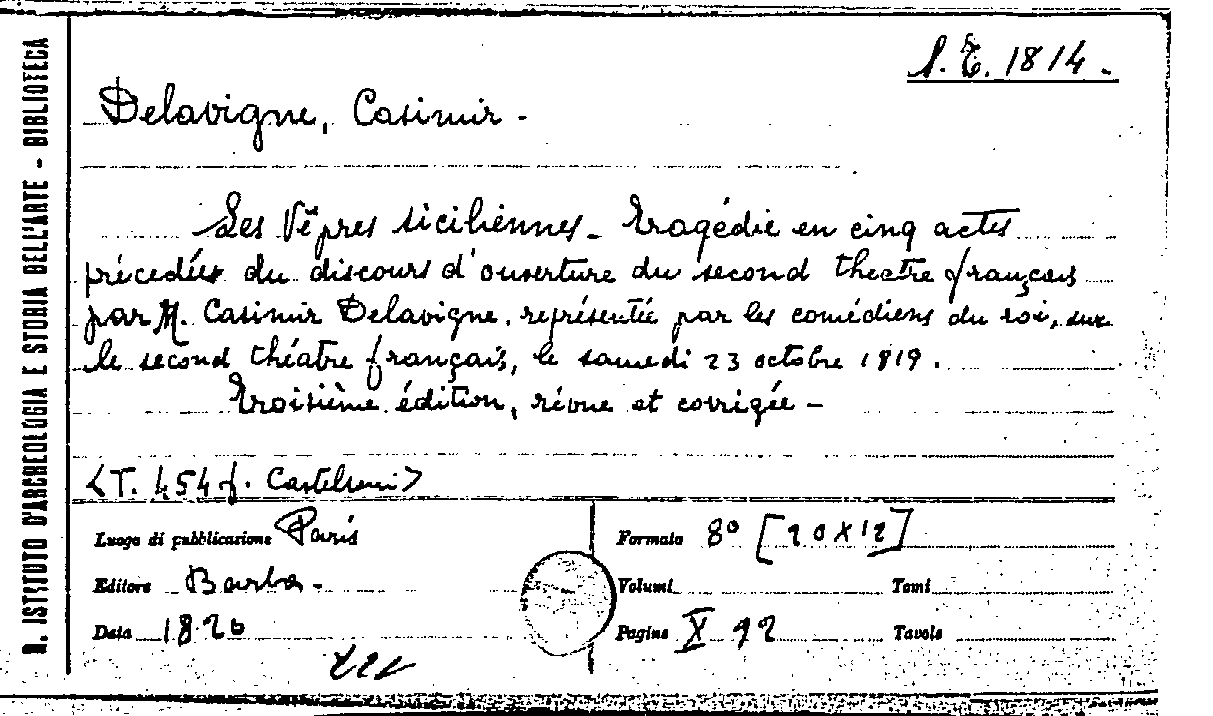 R. ISTITUTO D'ARCHEOLOGIA E STORIA DELL'ARTE - BIBLIOTECA
S. T. 1814.
Delavigne, Casimir -
Les Vêpres siciliennes - Tragédie en cinq actes
précedées du discours d'ouverture du second theatre français
par M. Casimir Delavigne, représentée par les comédiens du roi, sur
le second théatre français, le samedi 23 octobre 1819.
Troisième édition, révue et corrigée -
<T. 454 f.
Luogo di pubblicazione Paris
Formato 8° [20X12]
Editore Barba -
Volumi
Tomi
Data 1820
Pagine X 92
Tavole